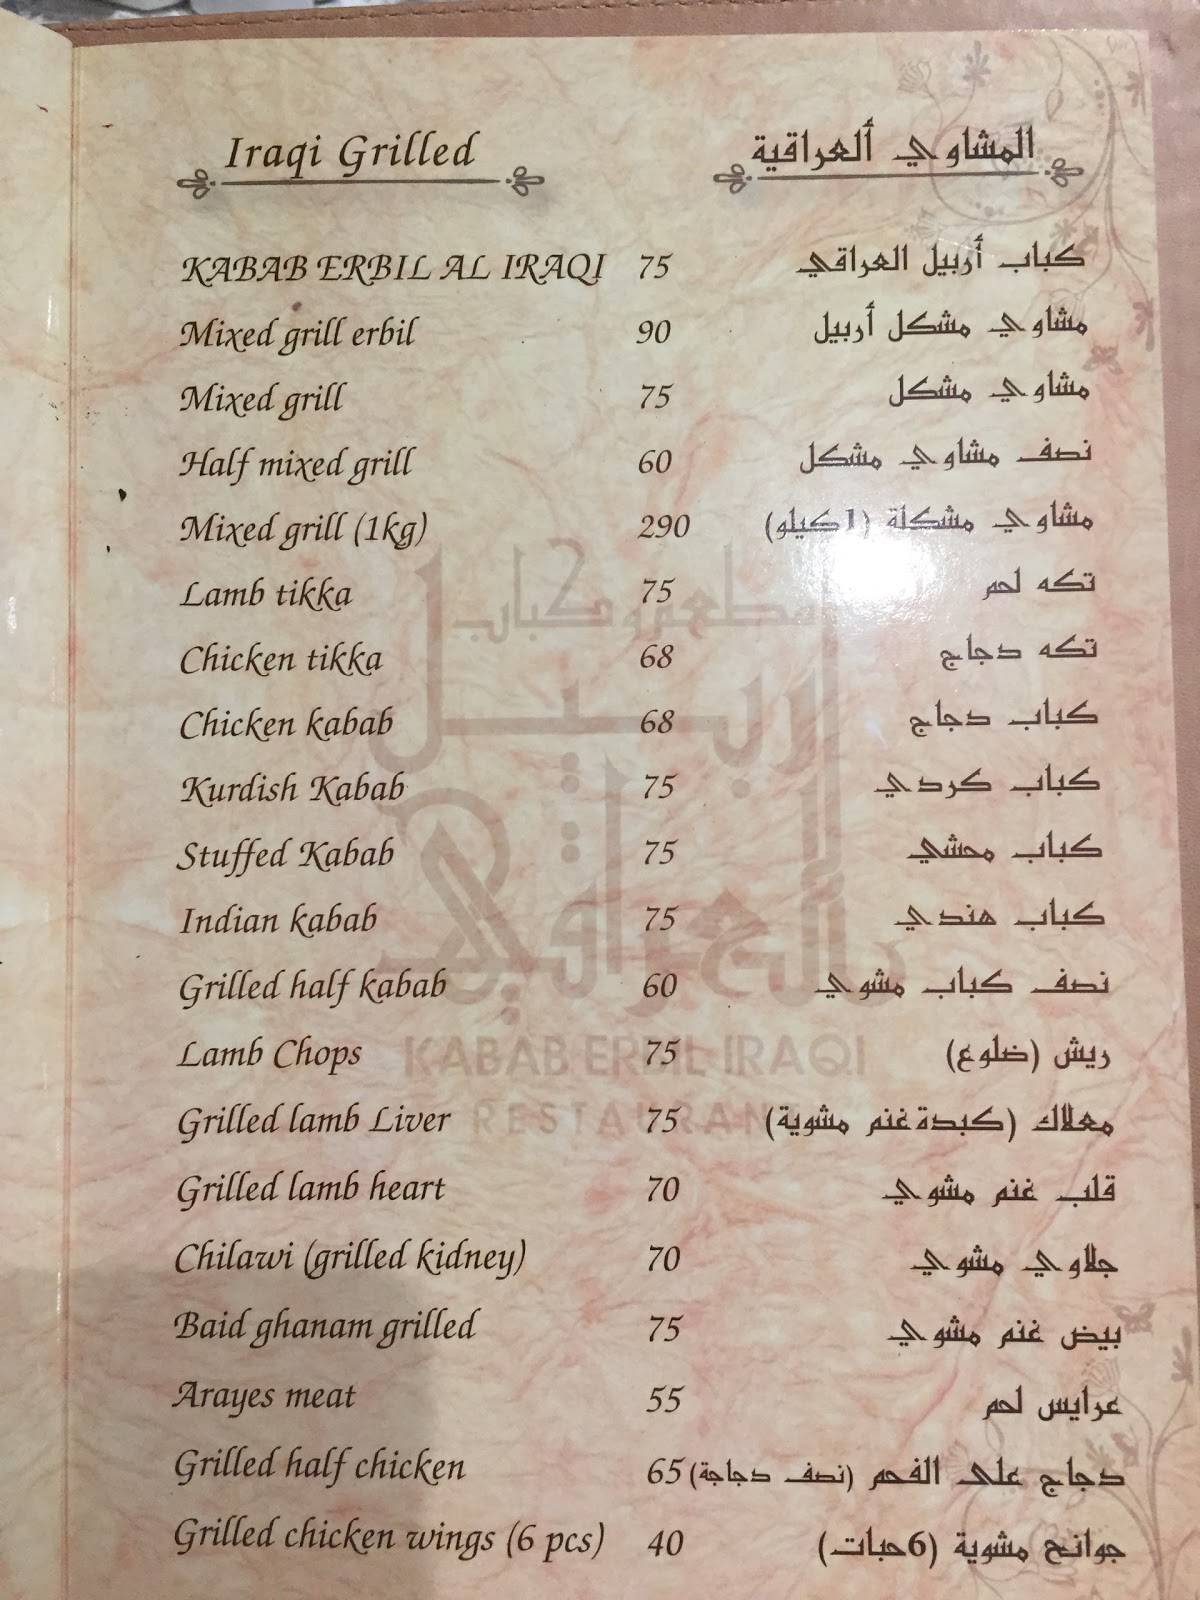 Iraqi Grilled المشاوي ألعراقية
KABAB ERBIL AL IRAQI 75 كباب أربيل العراقي
Mixed grill erbil 90 مشاوي مشكل أربيل
Mixed grill 75 مشاوي مشكل
Half mixed grill 60 نصف مشاوي مشكل
Mixed grill (1kg) 290 مشاوي مشكلة (1كيلو)
Lamb tikka 75 تكه لحم
Chicken tikka 68 تكه دجاج
Chicken kabab 68 كباب دجاج
Kurdish Kabab 75 كباب كردي
Stuffed Kabab 75 كباب محشي
Indian kabab 75 كباب هندي
Grilled half kabab 60 نصف كباب مشوي
Lamb Chops 75 ريش (ضلوع)
Grilled lamb Liver 75 معلاك (كبدة غنم مشوية)
Grilled lamb heart 70 قلب غنم مشوي
Chilawi (grilled kidney) 70 جلاوي مشوي
Baid ghanam grilled 75 بيض غنم مشوي
Arayes meat 55 عرايس لحم
Grilled half chicken 65 دجاج على الفحم (نصف دجاجة)
Grilled chicken wings (6 pcs) 40 جوانح مشوية (6حبات)
مطعم وكباب
اربيل
العراقي
KABAB ERBIL IRAQI
RESTAURANT